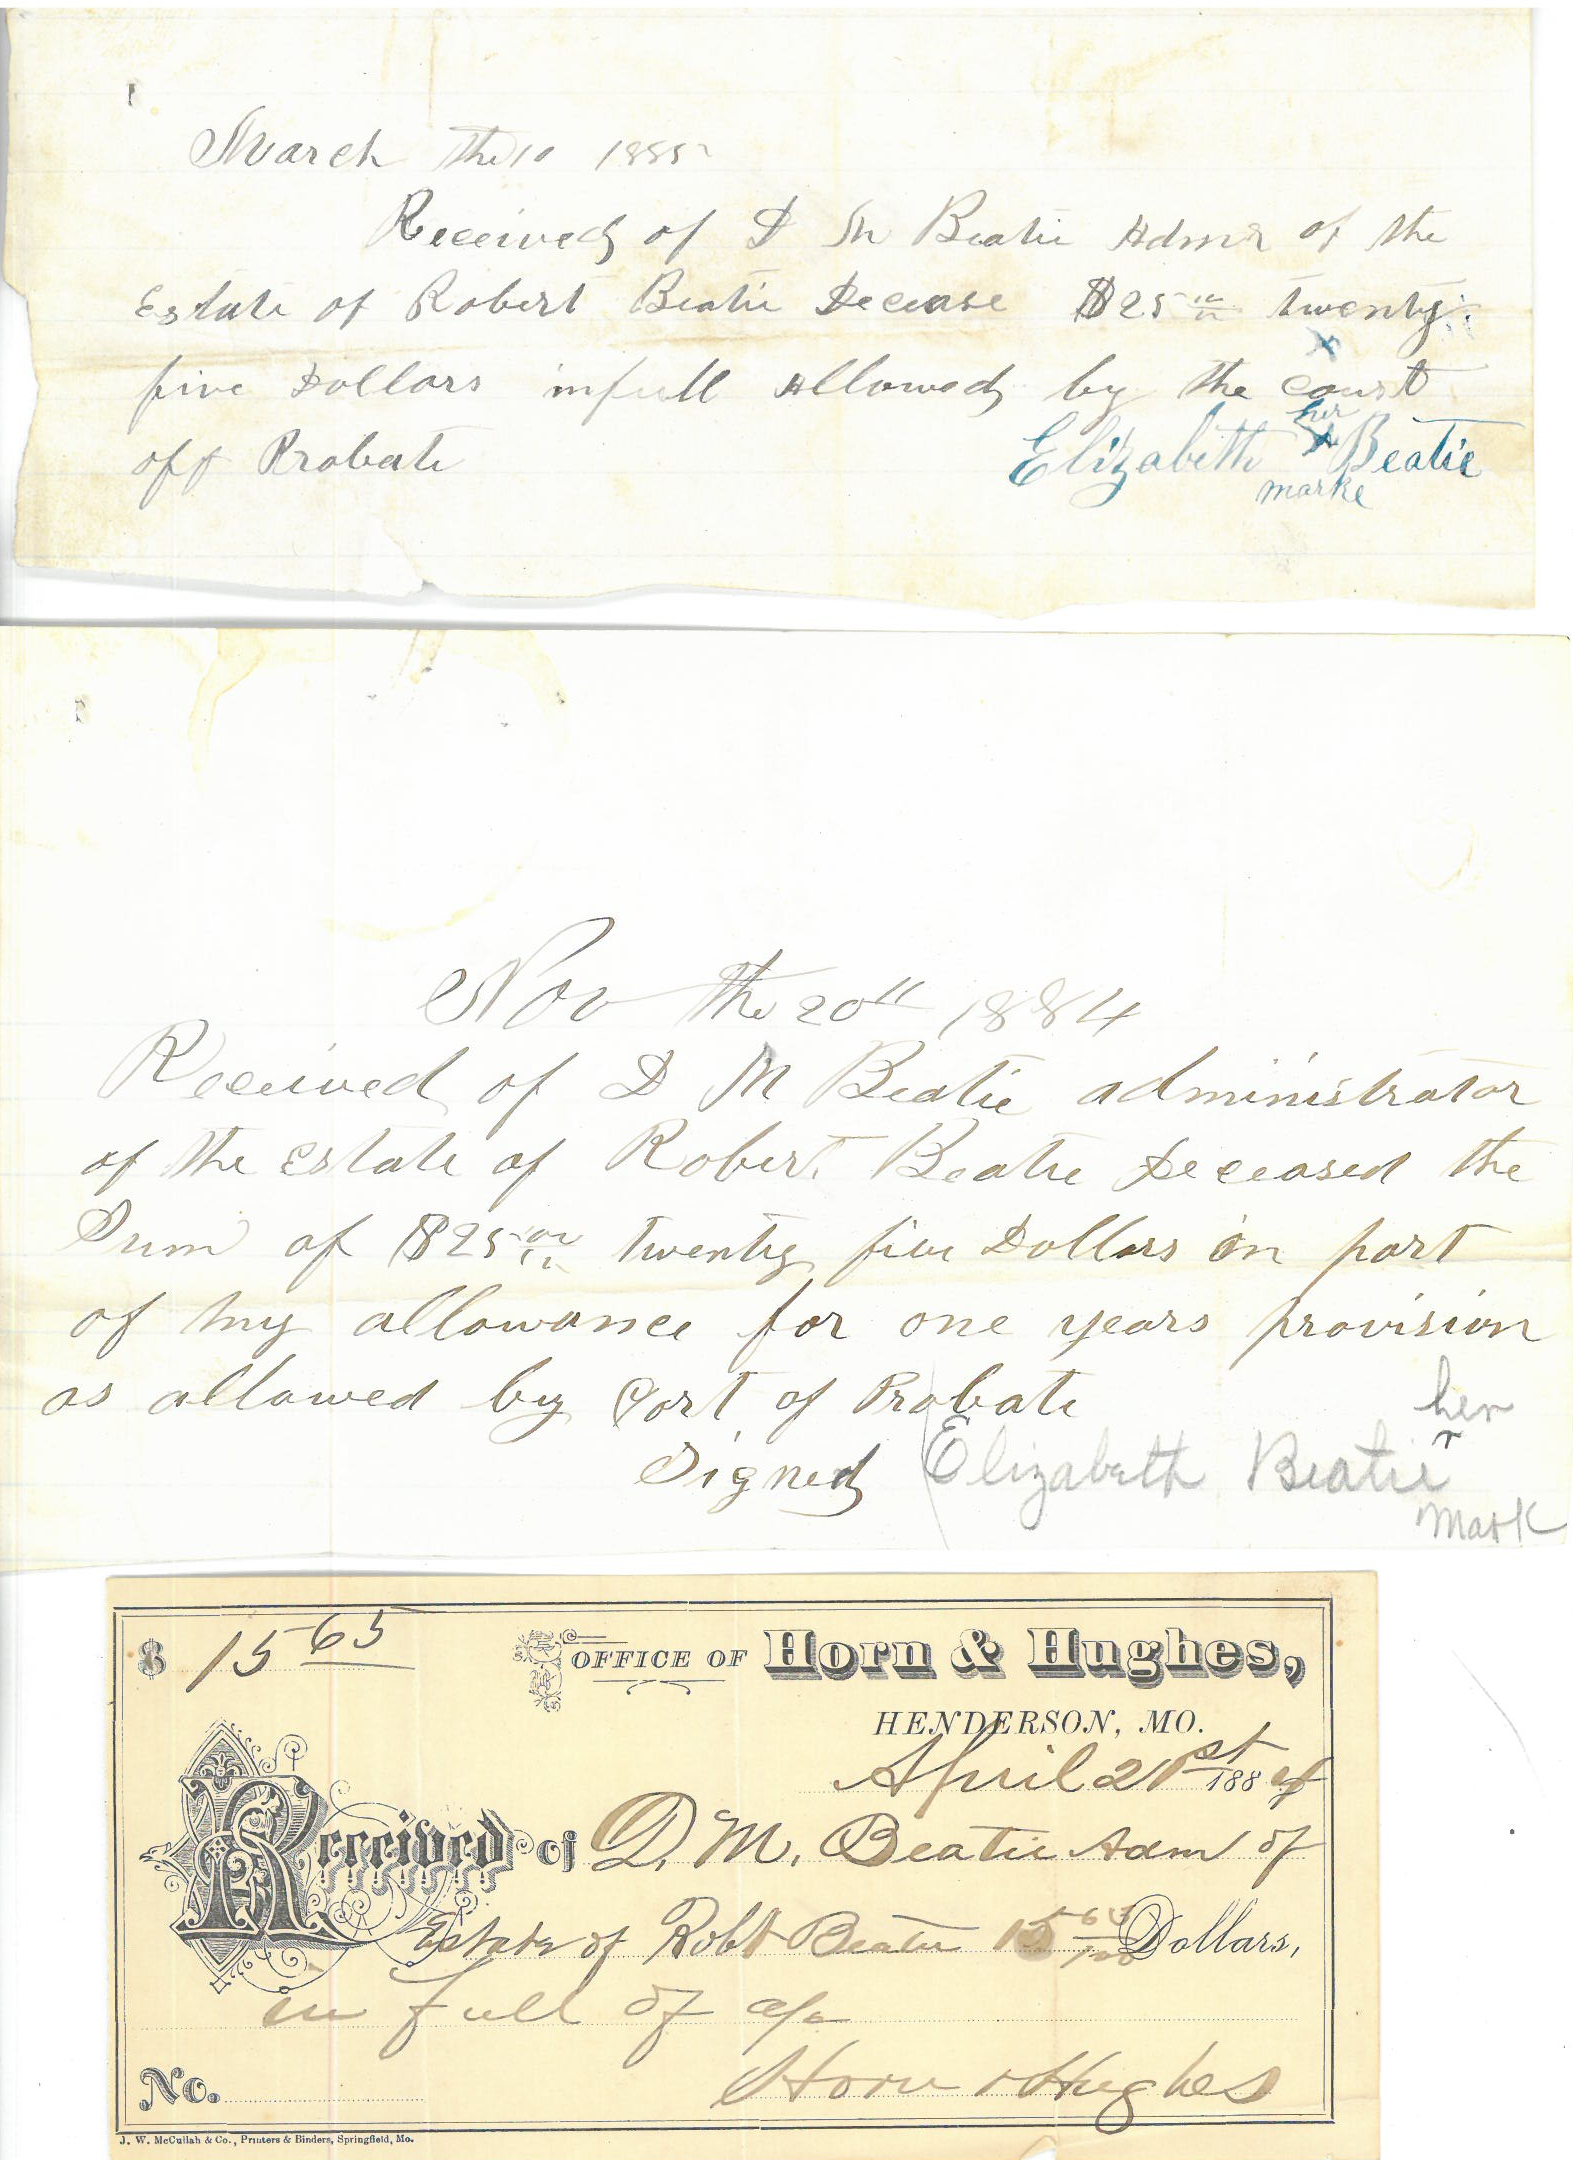 March the 10 1885
Received of D M Beatie Admr of the
Estate of Robert Beatie Decease $25 twenty
five Dollars infull Allowed by the court
off Probate
her
Elizabeth X Beatie
marke
Nov the 20th 1884
Received of D M Beatie administrator
of the Estate of Robert Beatie Deceased the
Sum of $25 twenty five Dollars in part
of my allowance for one years provision
as allowed by Cort of Probate
her
Signed Elizabeth Beatie
mark
$ 15 65
OFFICE OF Horn & Hughes,
HENDERSON, MO.
April 21st 1884
Received of D. M. Beatie Adm of
Estate of Robt Beatie 15 65/100 Dollars,
in full of a/c
Horn & Hughes
No.
J. W. McCullah & Co., Printers & Binders, Springfield, Mo.